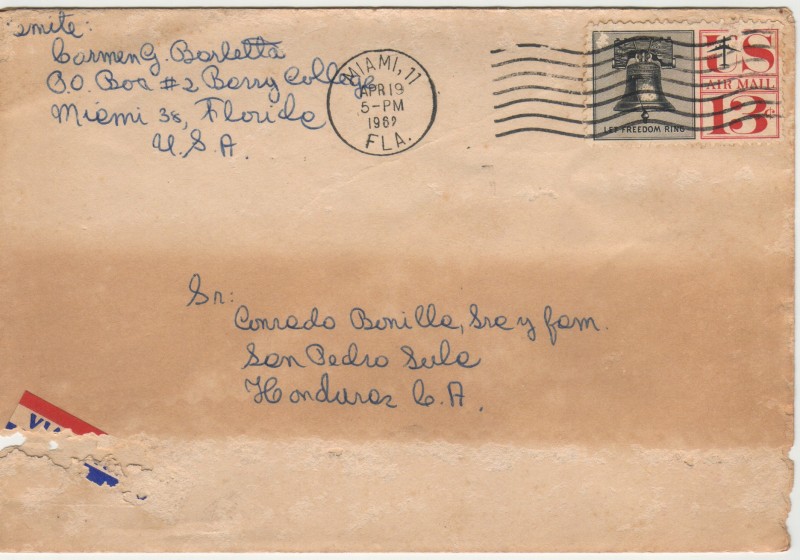 emite:
Carmen G. Barletta
P.O. Box #2 Barry College
Miami 38, Florida
U.S.A.
MIAMI, 11
APR 19
5-PM
FLA.
LET FREEDOM RING
US
AIR MAIL
13¢
Sr:
Conrado Bonilla, Sra y fam.
San Pedro Sula
Honduras C.A.